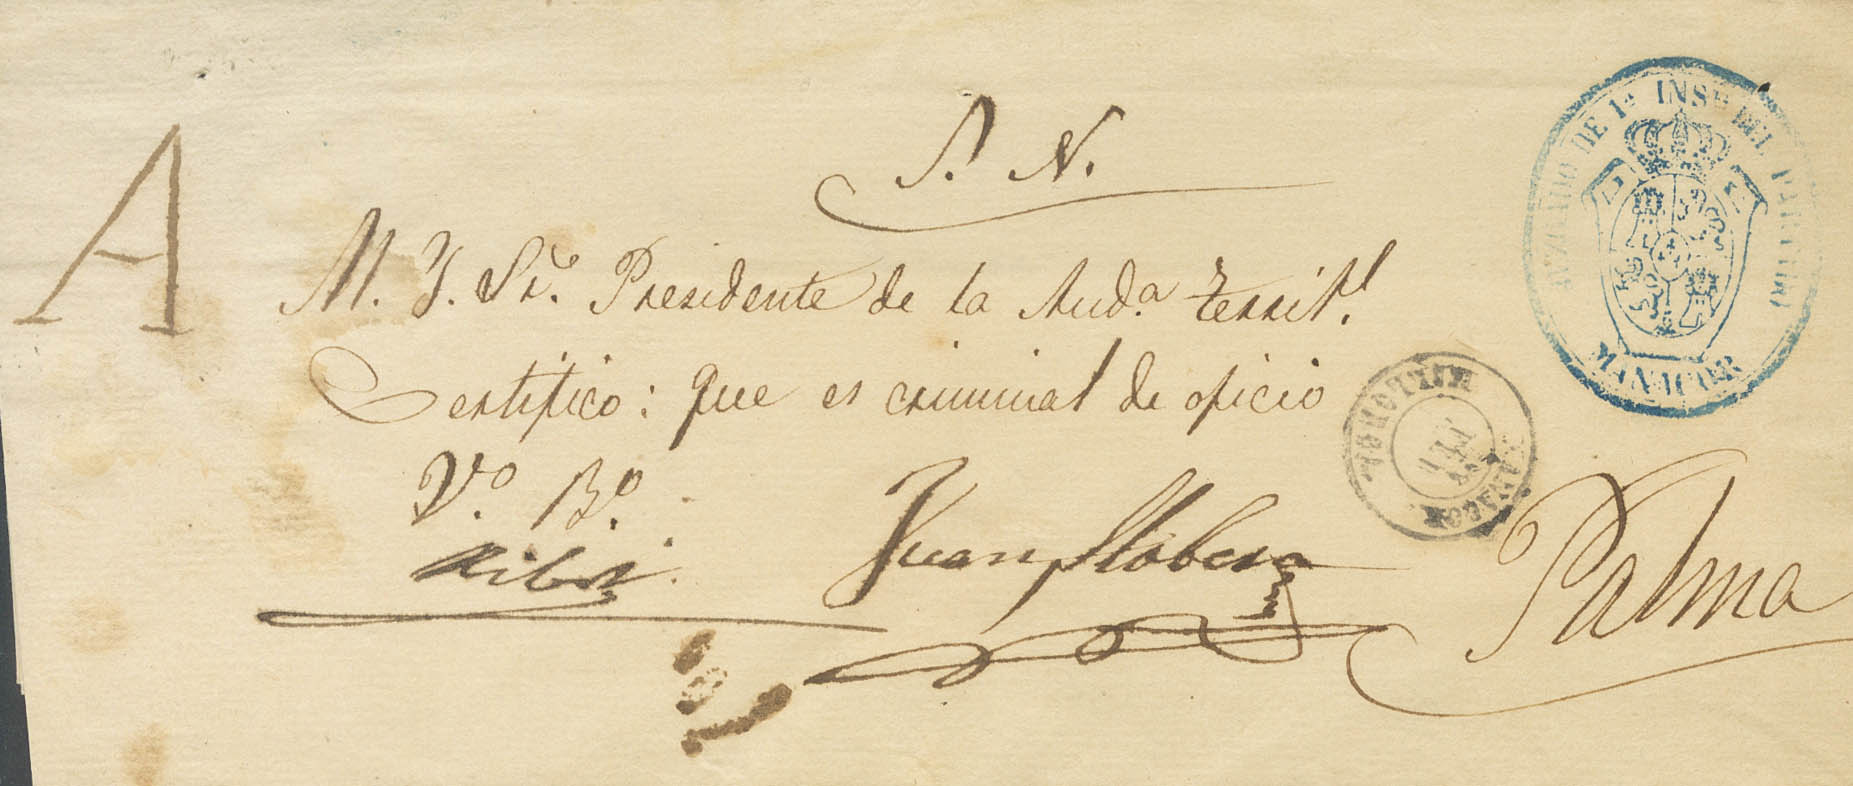 S. N.
A
M. Y. Sr. Presidente de la Aud.a territ.l
Certifico: que es criminal de oficio
V.o B.o
Ribot
Juan Llobera
Palma
JUZGADO DE 1a INSa DEL PARTIDO
MANACOR
MALLORCA
MANACOR